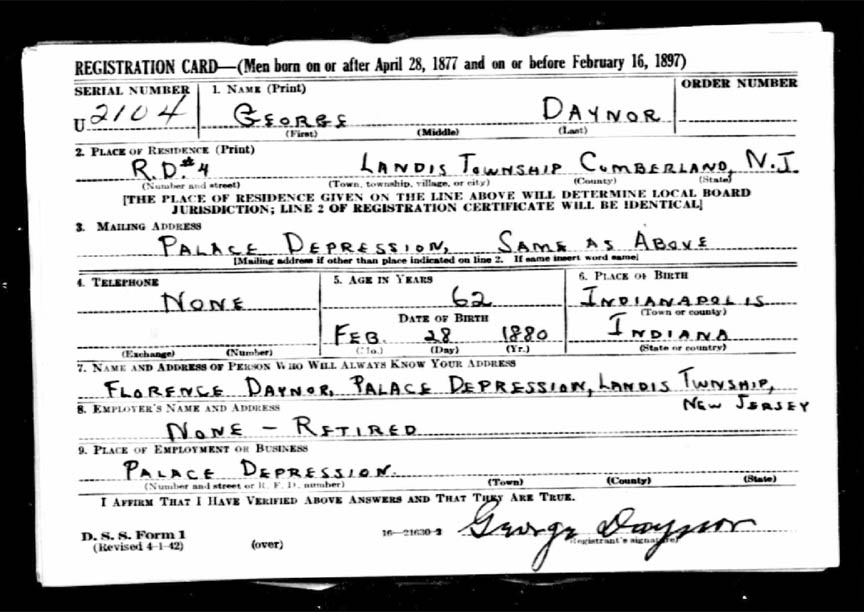 REGISTRATION CARD—(Men born on or after April 28, 1877 and on or before February 16, 1897)
SERIAL NUMBER 1. NAME (Print) ORDER NUMBER
U 2104 GEORGE DAYNOR
(First) (Middle) (Last)
2. PLACE OF RESIDENCE (Print)
R.D.#4 LANDIS TOWNSHIP CUMBERLAND, N.J.
(Number and street) (Town, township, village, or city) (County) (State)
[THE PLACE OF RESIDENCE GIVEN ON THE LINE ABOVE WILL DETERMINE LOCAL BOARD
JURISDICTION; LINE 2 OF REGISTRATION CERTIFICATE WILL BE IDENTICAL]
3. MAILING ADDRESS
PALACE DEPRESSION, SAME AS ABOVE
[Mailing address if other than place indicated on line 2. If same insert word same]
4. TELEPHONE 5. AGE IN YEARS 6. PLACE OF BIRTH
NONE 62 INDIANAPOLIS
DATE OF BIRTH (Town or county)
FEB. 28 1880 INDIANA
(Exchange) (Number) (Mo.) (Day) (Yr.) (State or country)
7. NAME AND ADDRESS OF PERSON WHO WILL ALWAYS KNOW YOUR ADDRESS
FLORENCE DAYNOR, PALACE DEPRESSION, LANDIS TWNSHIP,
NEW JERSEY
8. EMPLOYER'S NAME AND ADDRESS
NONE – RETIRED
9. PLACE OF EMPLOYMENT OR BUSINESS
PALACE DEPRESSION.
(Number and street or R. F. D. number) (Town) (County) (State)
I AFFIRM THAT I HAVE VERIFIED ABOVE ANSWERS AND THAT THEY ARE TRUE.
D. S. S. Form 1 16—21630-2 George Daynor
(Revised 4-1-42) (over) (Registrant's signature)